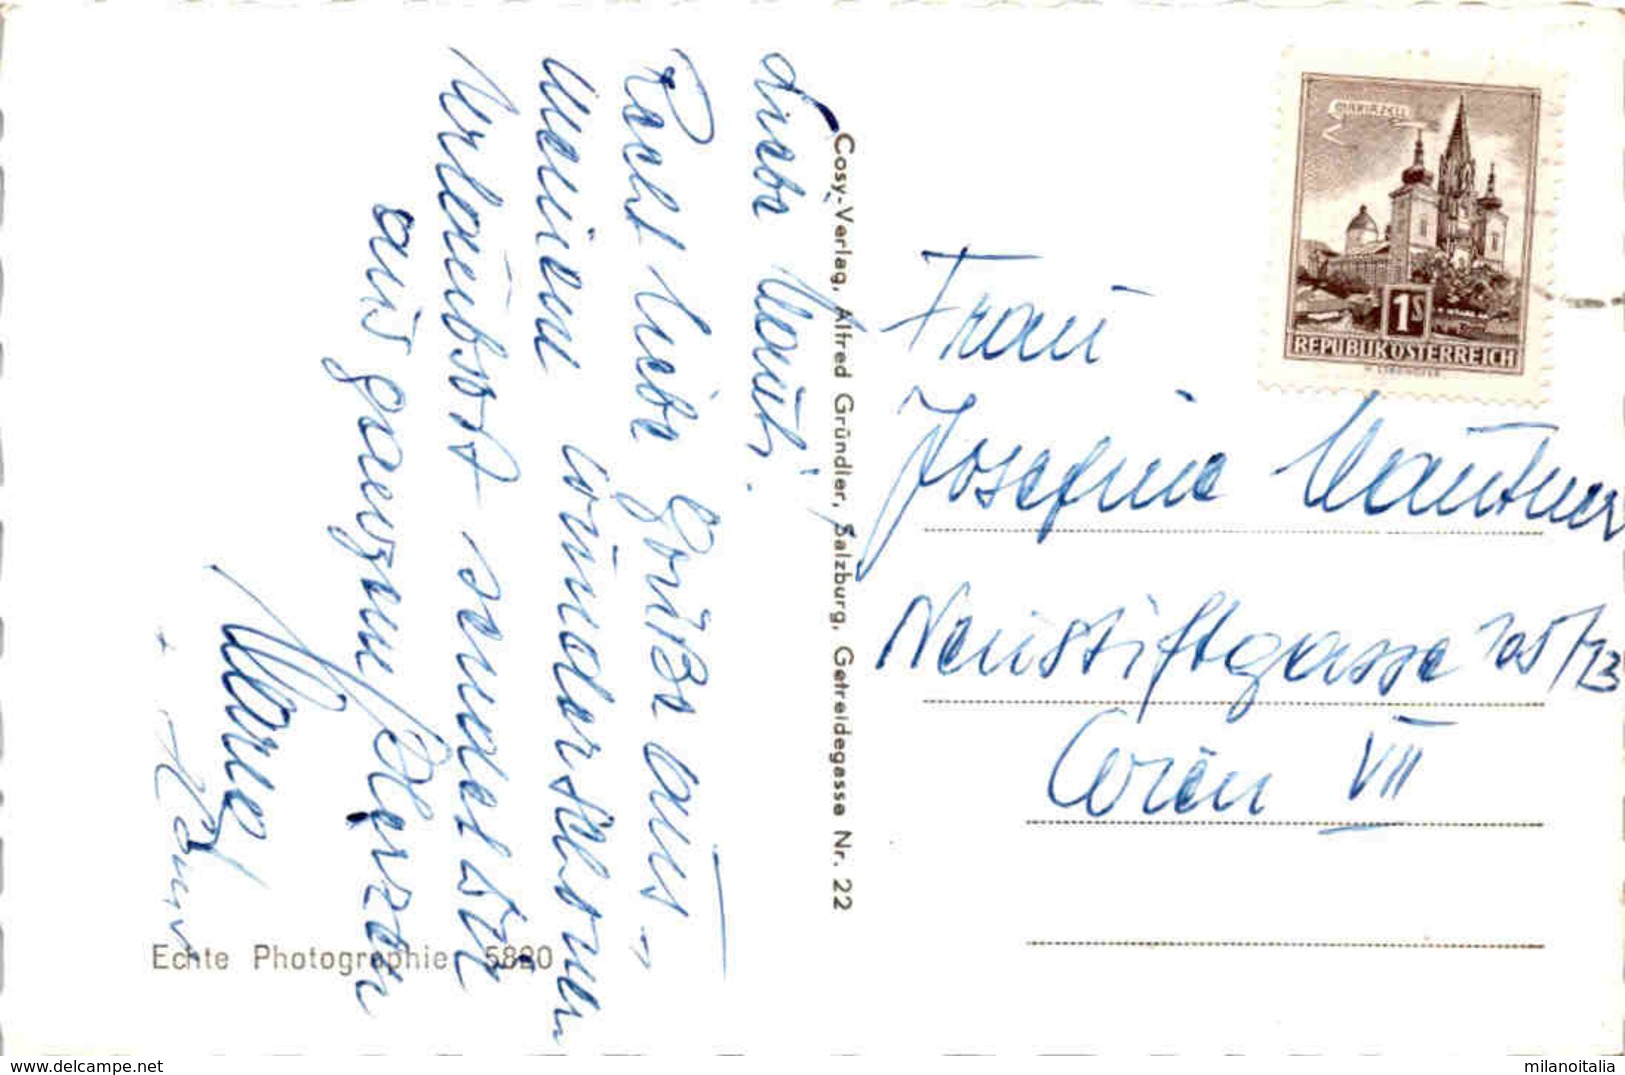 Liebe Mauti!
Recht liebe Grüße aus
meinem wunderschönen
Urlaubsort sendet Dir
aus ganzem Herzen
Cosy-Verlag, Alfred Gründler, Salzburg, Getreidegasse Nr. 22
MARIAZELL
1S
REPUBLIK ÖSTERREICH
Frau
Josefine Mautner
Neustiftgasse 105/13
Wien VII
Echte Photographie 5820
https://www.delcampe.net
milanoitalia